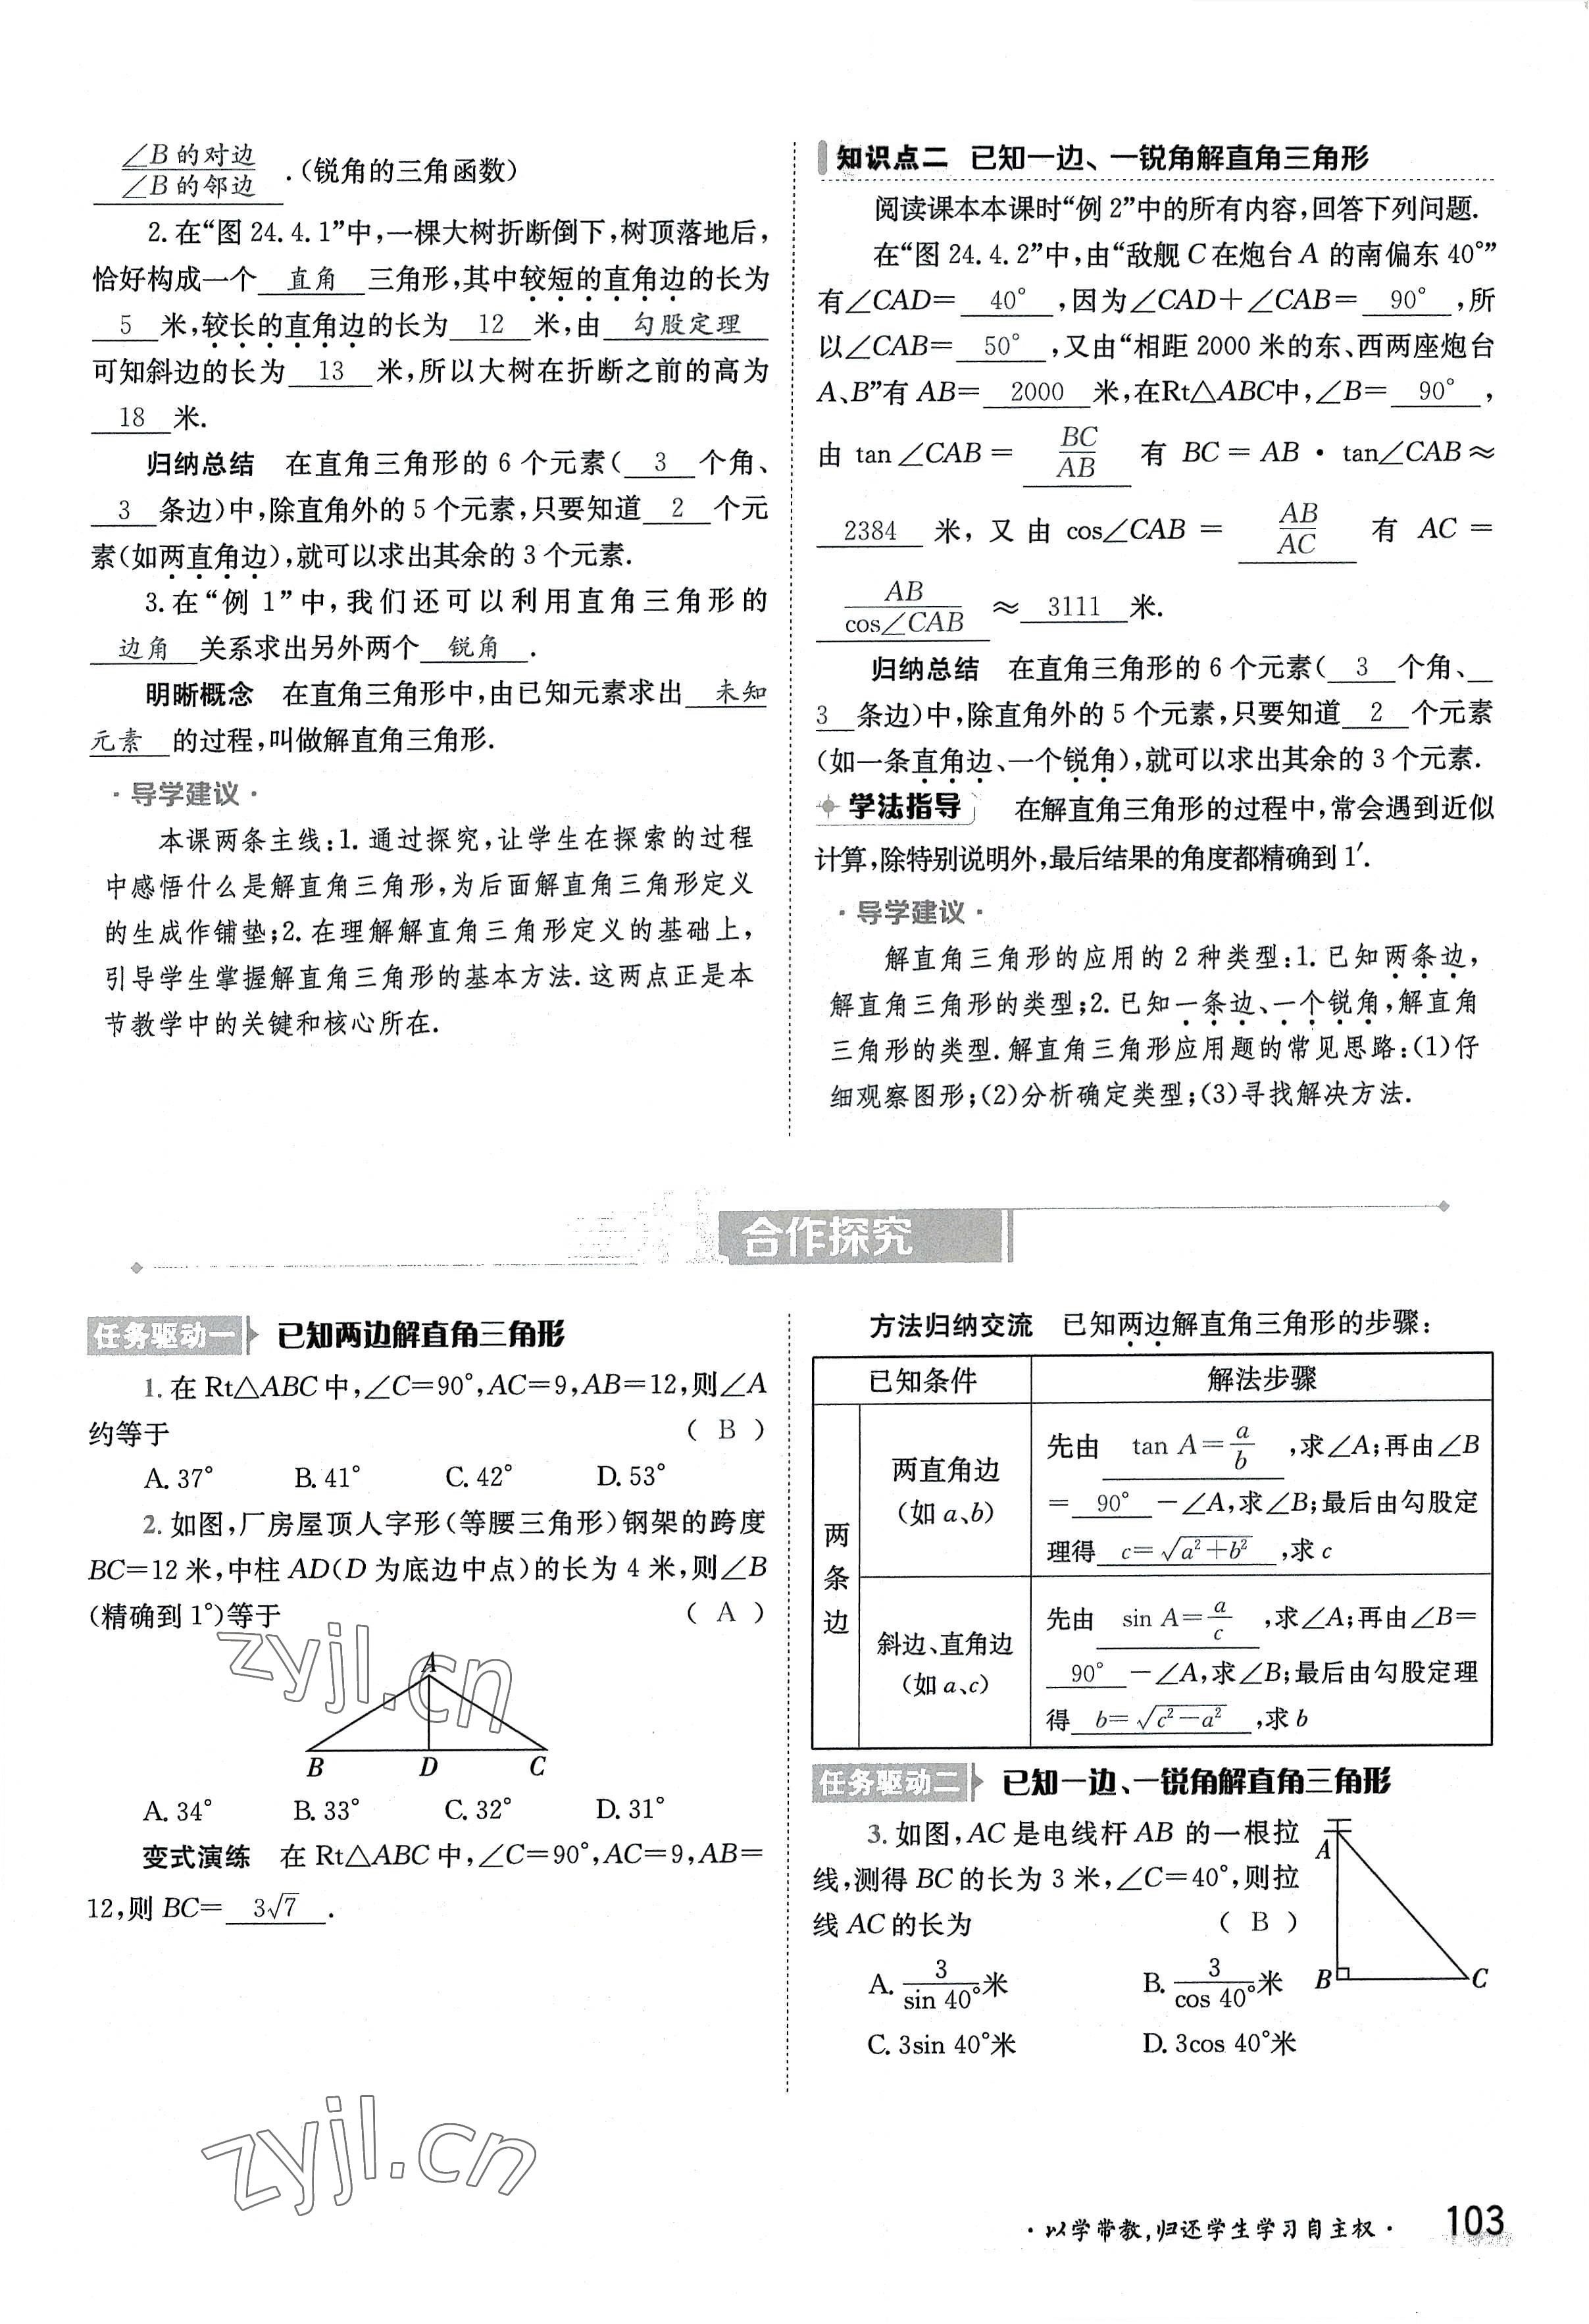 ∠B的对边/∠B的邻边.(锐角的三角函数)
2.在“图24.4.1”中,一棵大树折断倒下,树顶落地后,
恰好构成一个 直角 三角形,其中较短的直角边的长为
5 米,较长的直角边的长为 12 米,由 勾股定理
可知斜边的长为 13 米,所以大树在折断之前的高为
18 米.
归纳总结 在直角三角形的6个元素( 3 个角、
3 条边)中,除直角外的5个元素,只要知道 2 个元
素(如两直角边),就可以求出其余的3个元素.
3.在“例1”中,我们还可以利用直角三角形的
边角 关系求出另外两个 锐角 .
明晰概念 在直角三角形中,由已知元素求出 未知
元素 的过程,叫做解直角三角形.
·导学建议·
本课两条主线:1.通过探究,让学生在探索的过程
中感悟什么是解直角三角形,为后面解直角三角形定义
的生成作铺垫;2.在理解解直角三角形定义的基础上,
引导学生掌握解直角三角形的基本方法.这两点正是本
节教学中的关键和核心所在.
知识点二 已知一边、一锐角解直角三角形
阅读课本本课时“例2”中的所有内容,回答下列问题.
在“图24.4.2”中,由“敌舰C在炮台A的南偏东40°”
有∠CAD= 40° ,因为∠CAD+∠CAB= 90° ,所
以∠CAB= 50° ,又由“相距2000米的东、西两座炮台
A、B”有AB= 2000 米,在Rt△ABC中,∠B= 90° ,
由 tan∠CAB= BC/AB 有 BC=AB·tan∠CAB≈
2384 米,又由 cos∠CAB= AB/AC 有 AC=
AB/cos∠CAB ≈ 3111 米.
归纳总结 在直角三角形的6个元素( 3 个角、
3 条边)中,除直角外的5个元素,只要知道 2 个元素
(如一条直角边、一个锐角),就可以求出其余的3个元素.
学法指导 在解直角三角形的过程中,常会遇到近似
计算,除特别说明外,最后结果的角度都精确到1′.
·导学建议·
解直角三角形的应用的2种类型:1.已知两条边,
解直角三角形的类型;2.已知一条边、一个锐角,解直角
三角形的类型.解直角三角形应用题的常见思路:(1)仔
细观察图形;(2)分析确定类型;(3)寻找解决方法.
合作探究
任务驱动一 已知两边解直角三角形
1.在Rt△ABC中,∠C=90°,AC=9,AB=12,则∠A
约等于 ( B )
A.37° B.41° C.42° D.53°
2.如图,厂房屋顶人字形(等腰三角形)钢架的跨度
BC=12米,中柱AD(D为底边中点)的长为4米,则∠B
(精确到1°)等于 ( A )
zyjl.cn
A
B D C
A.34° B.33° C.32° D.31°
变式演练 在Rt△ABC中,∠C=90°,AC=9,AB=
12,则BC= 3√7 .
方法归纳交流 已知两边解直角三角形的步骤:
已知条件 解法步骤
两条边
两直角边
(如a、b)
先由 tan A=a/b ,求∠A;再由∠B
= 90° -∠A,求∠B;最后由勾股定
理得 c=√(a²+b²) ,求c
斜边、直角边
(如a、c)
先由 sin A=a/c ,求∠A;再由∠B=
90° -∠A,求∠B;最后由勾股定理
得 b=√(c²-a²) ,求b
任务驱动二 已知一边、一锐角解直角三角形
3.如图,AC是电线杆AB的一根拉
线,测得BC的长为3米,∠C=40°,则拉
线AC的长为 ( B )
A
B C
A. 3/sin 40°米 B. 3/cos 40°米
C.3sin 40°米 D.3cos 40°米
zyjl.cn
·以学带教,归还学生学习自主权· 103